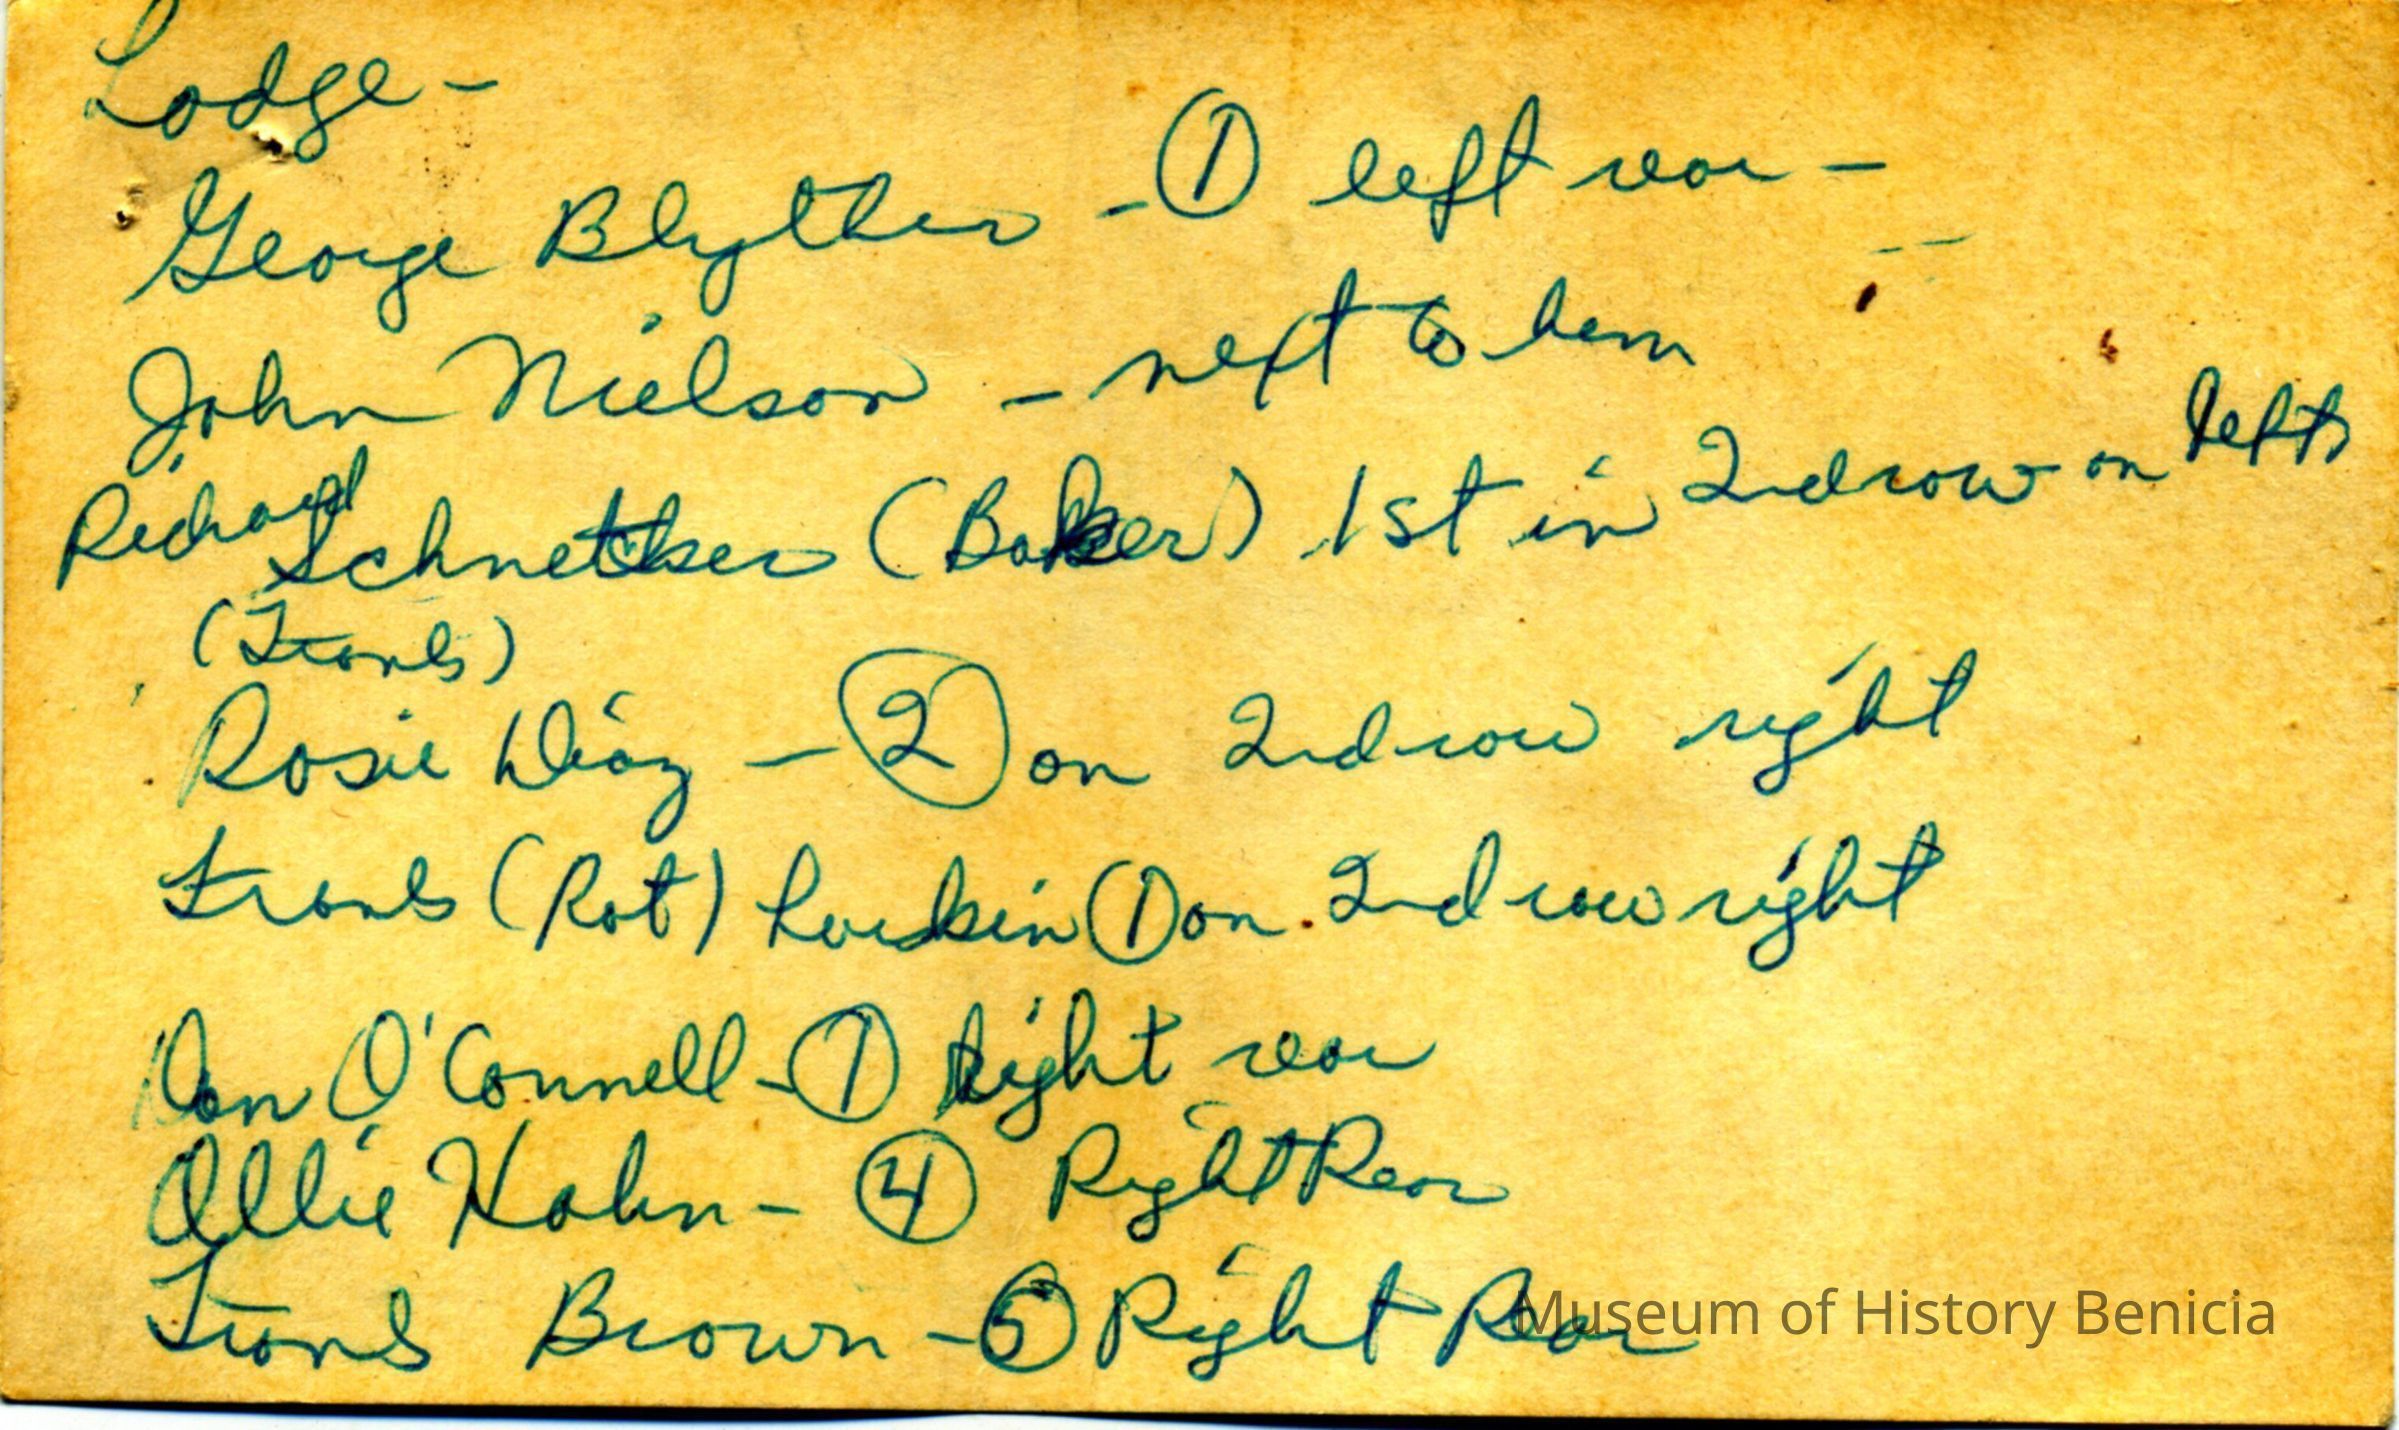 Lodge -
George Blyther - ① left rear -
John Nielson - next to him
Richard Schnetker (Baker) 1st in 2nd row on left
(Frank)
Rosie Diaz - ② on 2nd row right
Frank (Rat) ① on 2nd row right
Don O'Connell - ① Right rear
Ollie Hahn - ④ Right Rear
Frank Brown - ⑤ Right Rear
Museum of History Benicia